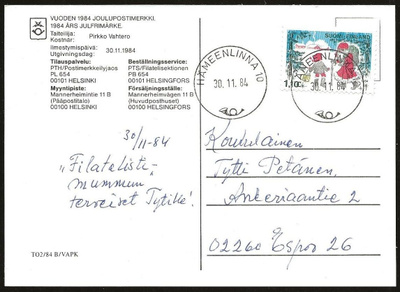 VUODEN 1984 JOULUPOSTIMERKKI.
1984 ÅRS JULFRIMÄRKE.
Taiteilija:
Kostnär: Pirkko Vahtero
Ilmestymispäivä:
Utgivningsdag: 30.11.1984
Tilauspalvelu:
PTH/Postimerkkeilyjaos
PL 654
00101 HELSINKI
Beställningsservice:
PTS/Filatelisektionen
PB 654
00101 HELSINGFORS
Myyntipiste:
Mannerheimintie 11 B
(Pääpostitalo)
00100 HELSINKI
Försäljningsställe:
Mannerheimvägen 11 B
(Huvudposthuset)
00100 HELSINGFORS
HÄMEENLINNA 10
30.11.84
SUOMI FINLAND
1,10
HÄMEENLINNA
30.11.84
30/11-84
"Filatelisti-
mummun
terveiset Tytille!
Koululainen
Tytti Petänen
Ankeriaantie 2
02260 Espoo 26
TO2/84 B/VAPK